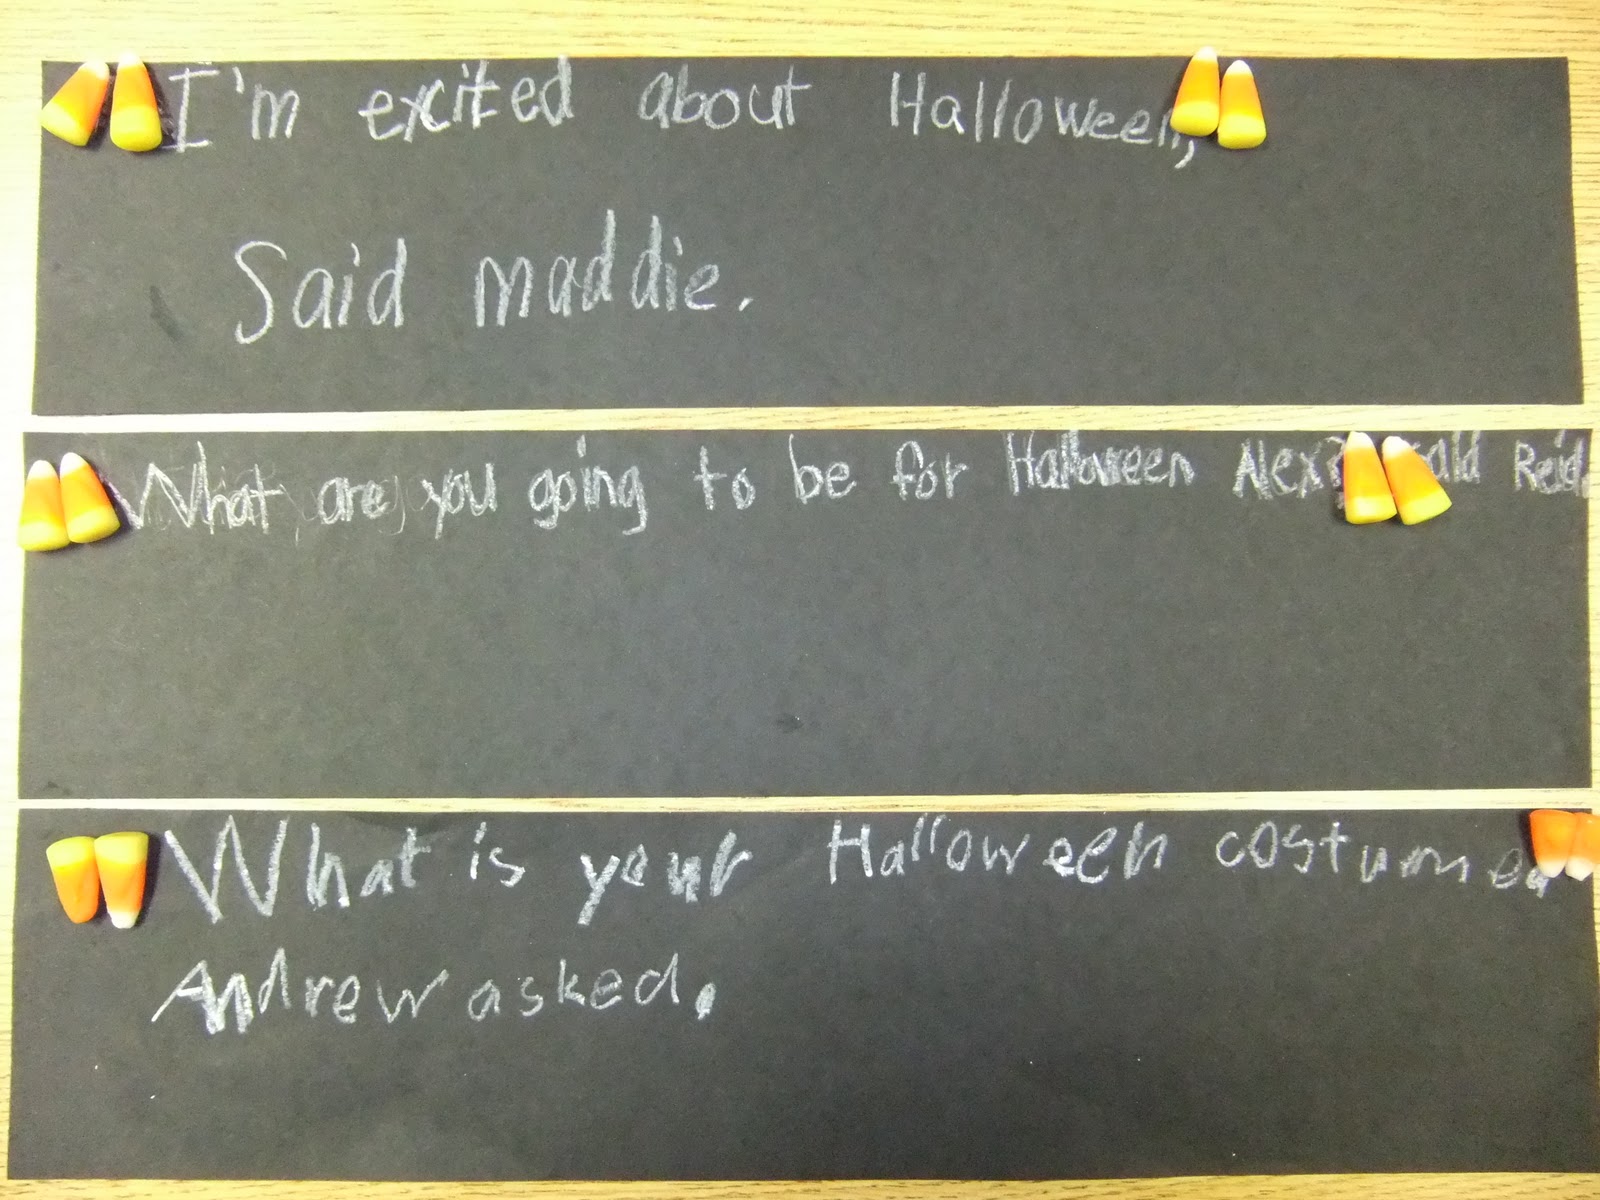 I'm excited about Halloween,
Said maddie.
What are you going to be for Halloween Alex? said Reid.
What is your Halloween costume
Andrew asked.